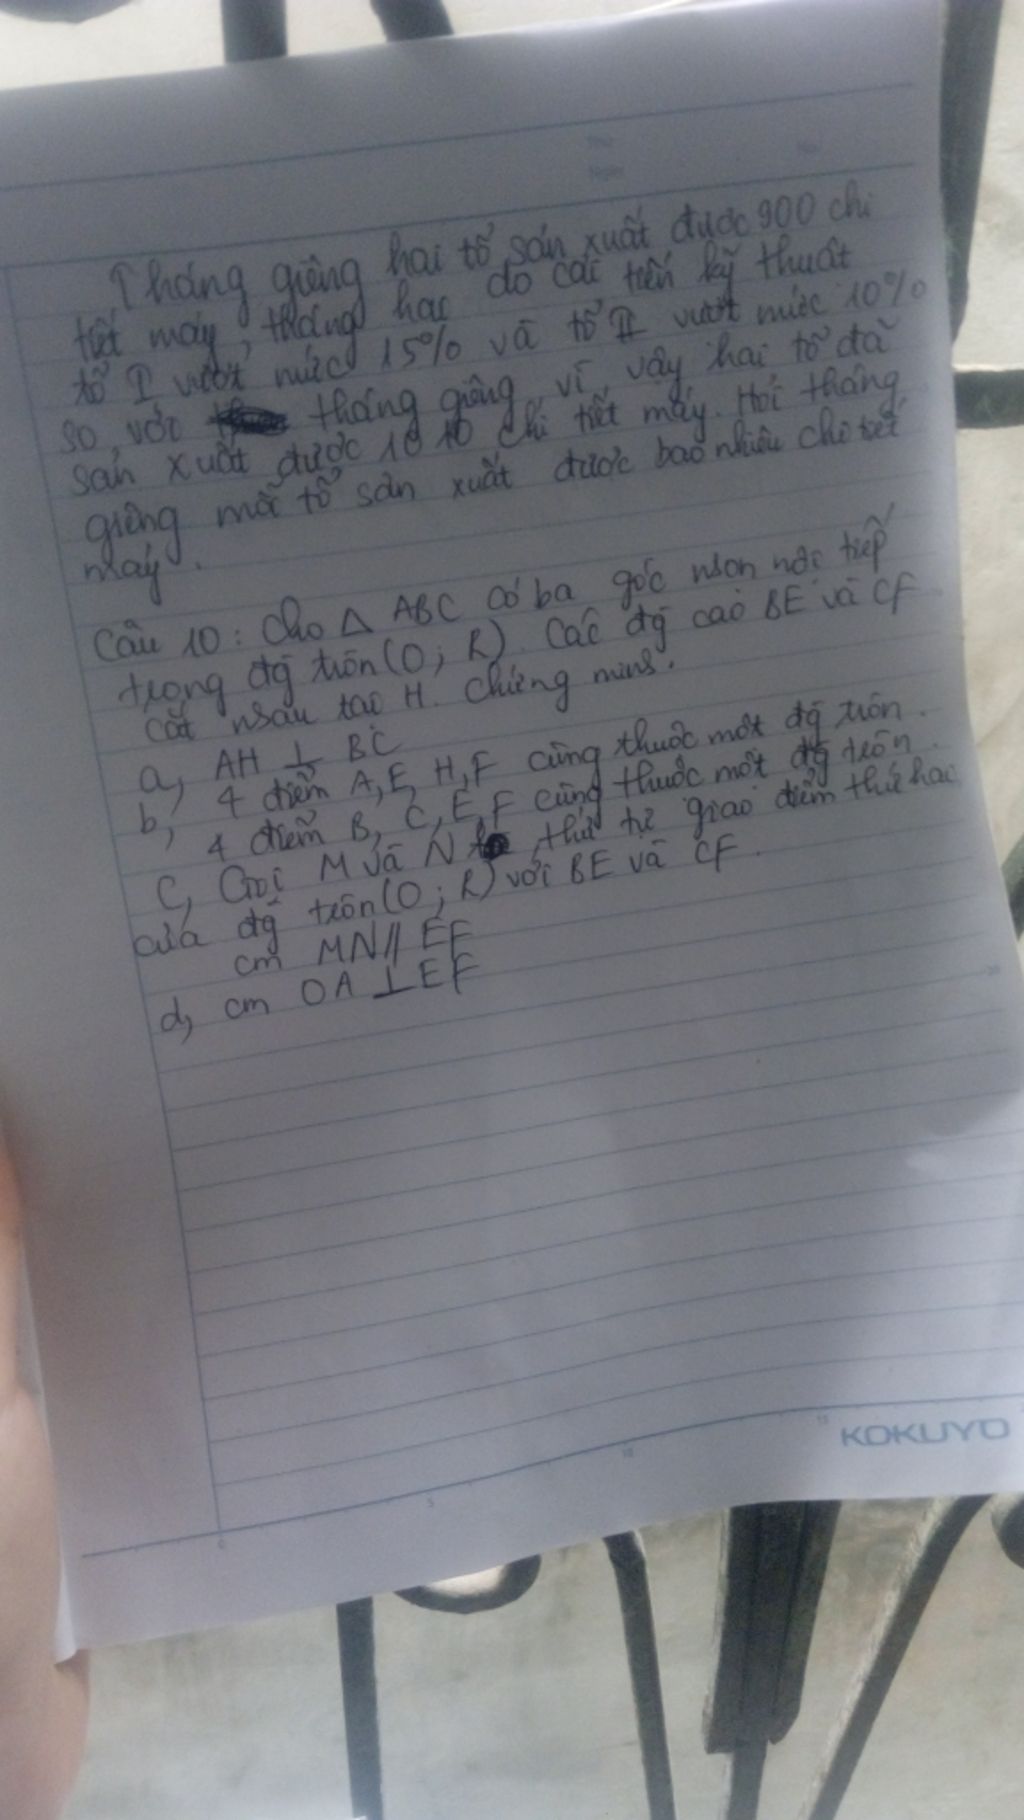 Tháng giêng hai tổ sản xuất được 900 chi
tiết máy, tháng hai do cải tiến kỹ thuật
tổ I vượt mức 15% và tổ II vượt mức 10%
so với tháng giêng, vì vậy hai tổ đã
sản xuất được 1010 chi tiết máy. Hỏi tháng
giêng mỗi tổ sản xuất được bao nhiêu chi tiết
máy.
Câu 10: Cho △ ABC có ba góc nhọn nội tiếp
trong đg tròn (O; R). Các đg cao BE và CF
cắt nhau tại H. Chứng minh.
a, AH ⊥ BC
b, 4 điểm A, E, H, F cùng thuộc một đg tròn.
4 điểm B, C, E, F cùng thuộc một đg tròn.
C, Gọi M và N thứ tự giao điểm thứ hai
của đg tròn (O; R) với BE và CF.
cm MN // EF
d, cm OA ⊥ EF
5
10
15
20
KOKUYO